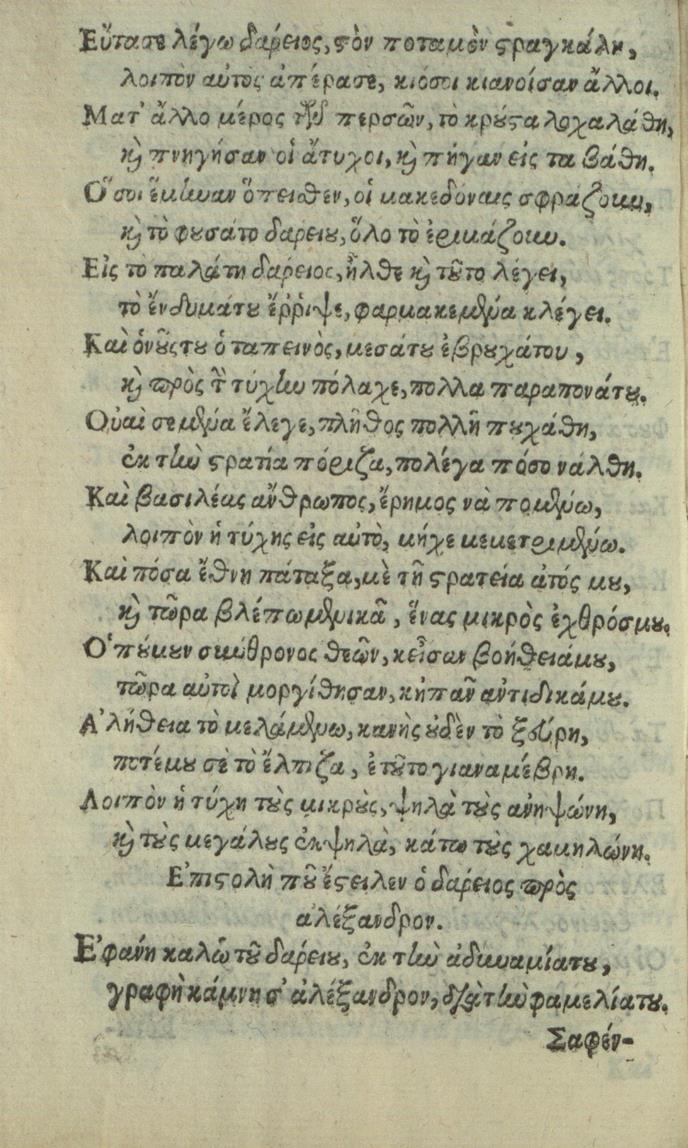 Εὔτασε λέγω δάρειος, τὸν ποταμὸν στραγκάλη,
λοιπὸν αὐτὸς ἀπέρασε, κιόσοι κιανοίσαν ἄλλοι.
Ματ' ἄλλο μέρος τῶν περσῶν, τὸ κρύσταλο χαλάθη,
καὶ πνηγῆσαν οἱ ἄτυχοι, καὶ πῆγαν εἰς τα βάθη.
Ὅσοι ἔμειναν ὄπειθεν, οἱ μακεδόναις σφράζουν,
καὶ τὸ φυσάτο δαρείου, ὅλο τὸ ἐριμάζουν.
Εἰς τὸ παλάτη δάρειος, ἦλθε καὶ τοῦτο λέγει,
τὸ ἔνδυμάτου ἔῤῥιψε, φαρμακεμένα κλέγει.
Καὶ ὁνοῦστου ὁ ταπεινὸς, μεσάτου ἐβρυχάτου,
καὶ πρὸς τὴ τύχην πόλαχε, πολλα παραπονάτου.
Οὐαὶ σεμένα ἔλεγε, πλῆθος πολλὴ πυχάθη,
ἐκ τὴν στρατία πόριζα, πολέγα πόσο νάλθη.
Καὶ βασιλέας ἄνθρωπος, ἔρημος νὰ πομένω,
λοιπὸν ἡ τύχης εἰς αὐτὸ, μῆχε μεμετριμένω.
Καὶ πόσα ἔθνη πάταξα, μὲ τὴ στρατεία ἀτός μου,
καὶ τῶρα βλέπω μένικᾶ, ἕνας μικρὸς ἐχθρόσμου.
Ὁποὔμουν σινύθρονος θεῶν, κεἶσαν βοήθειάμου,
τῶρα αὐτοὶ μοργίθησαν, κἠπᾶν ἀντιδικάμου.
Ἀλήθεια τὸ μελάμενω, κανῆς οὐδὲν τὸ ξεύρη,
ποτέμου σὲ τὸ ἔλπιζα, ἐτοῦτο γιαναμέβρη.
Λοιπὸν ἡ τύχη τοὺς μικροὺς, ψηλὰ τοὺς ἀνηψώνη,
καὶ τοὺς μεγάλους ἐκ ψηλὰ, κάτω τοὺς χαμηλώνη.
Ἐπιστολὴ ποῦ ἔστειλεν ὁ δάρειος πρὸς
αλέξανδρον.
Ἐφάνη καλὸ τοῦ δάρειου, ἐκ τὴν ἀδυναμίατου,
γραφὴ κάμνη σ' ἀλέξανδρον, διὰ τὴν φαμελίατου.
Σαφέν-